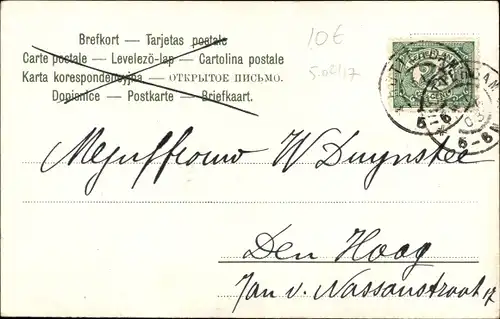 Brefkort — Tarjetas postale
Carte postale — Levelező-lap — Cartolina postale
Karta korespondencyjna — ОТКРЫТОЕ ПИСЬМО.
Dopisnice — Postkarte — Briefkaart.
10€
Mejuffrouw W Duynstee
Den Haag
Jan v. Nassaustraat 17